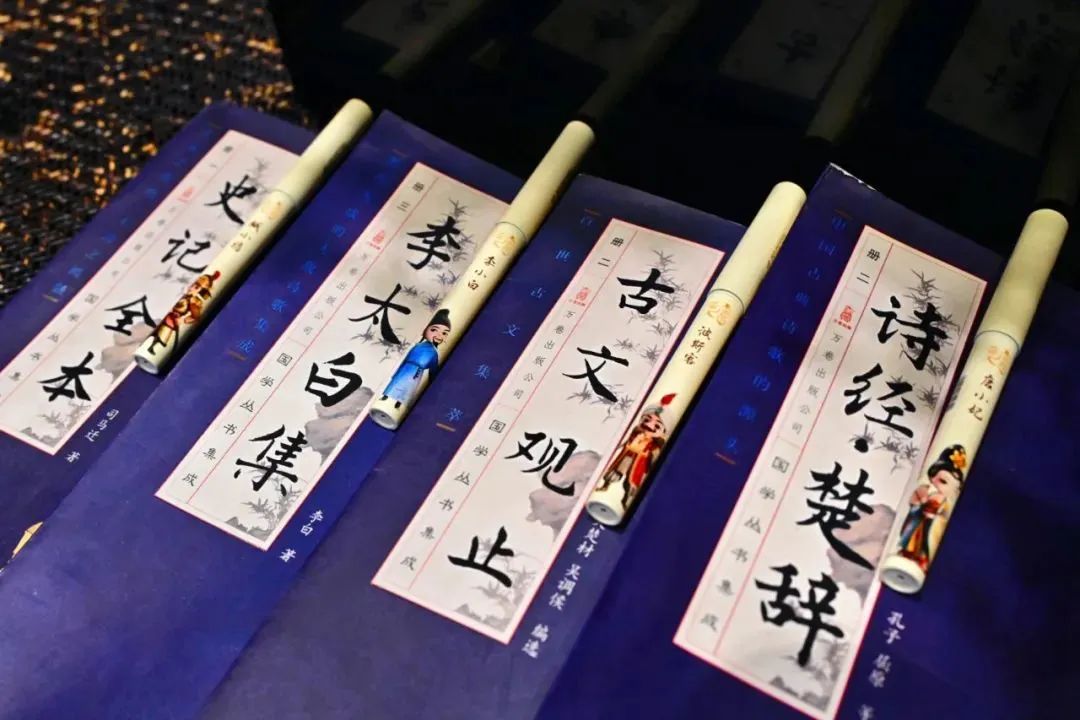 史记全本
册一
国学丛书集成
司马迁 著
李太白集
册三
万卷出版公司
国学丛书集成
李白 著
李小白
古文观止
册二
万卷出版公司
国学丛书集成
百世古文集萃
楚材 吴调侯 编选
波斯客
诗经·楚辞
册二
万卷出版公司
国学丛书集成
中国古典诗歌的源头
孔子 屈原 等
唐小妃